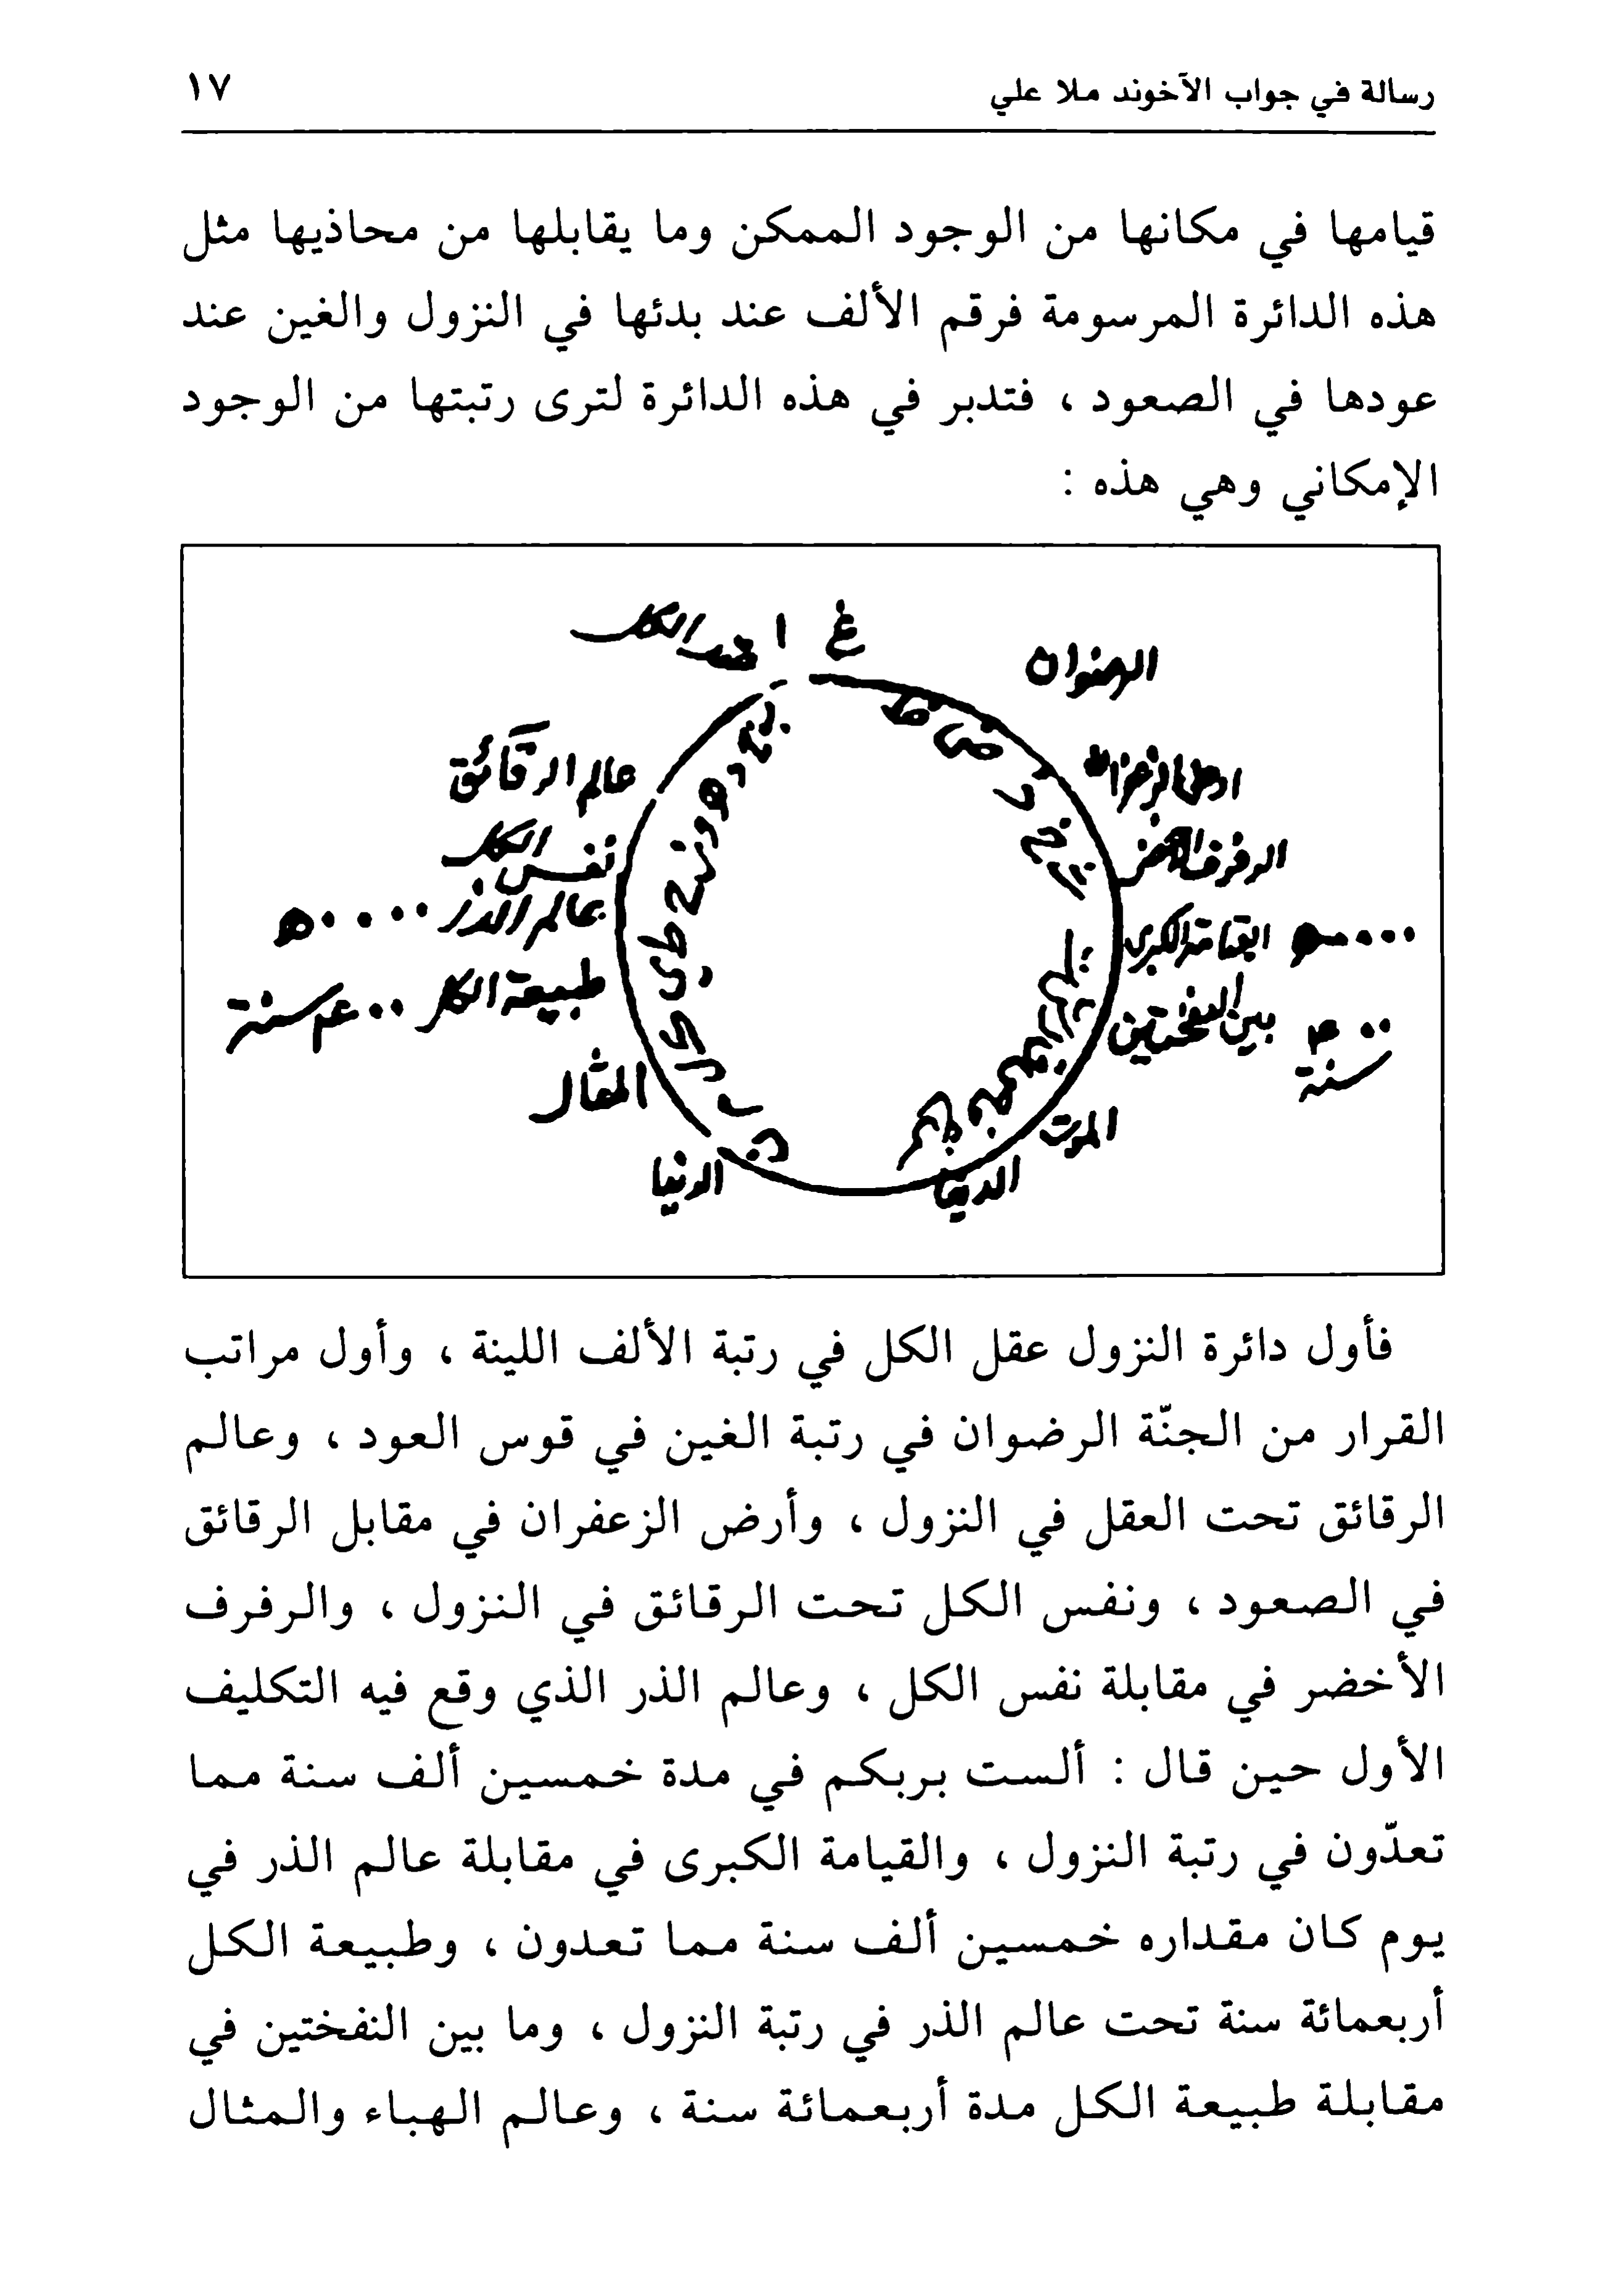 رسالة في جواب الآخوند ملا علي ١٧
قيامها في مكانها من الوجود الممكن وما يقابلها من محاذيها مثل
هذه الدائرة المرسومة فرقم الألف عند بدئها في النزول والغين عند
عودها في الصعود ، فتدبر في هذه الدائرة لترى رتبتها من الوجود
الإمكاني وهي هذه :
غ
ا
الكل
عالم الرقائق
الرفرف
نفس الكل
عالم الذر ٥٠٠٠٠
القيامة الكبرى ٥٠٠٠٠
طبيعة الكل ٤٠٠ سنة
بين النفختين ٤٠٠
سنة
المثال
الموت
الدنيا
الدنيا
فأول دائرة النزول عقل الكل في رتبة الألف اللينة ، وأول مراتب
القرار من الجنّة الرضوان في رتبة الغين في قوس العود ، وعالم
الرقائق تحت العقل في النزول ، وأرض الزعفران في مقابل الرقائق
في الصعود ، ونفس الكل تحت الرقائق في النزول ، والرفرف
الأخضر في مقابلة نفس الكل ، وعالم الذر الذي وقع فيه التكليف
الأول حين قال : ألست بربكم في مدة خمسين ألف سنة مما
تعدّون في رتبة النزول ، والقيامة الكبرى في مقابلة عالم الذر في
يوم كان مقداره خمسين ألف سنة مما تعدون ، وطبيعة الكل
أربعمائة سنة تحت عالم الذر في رتبة النزول ، وما بين النفختين في
مقابلة طبيعة الكل مدة أربعمائة سنة ، وعالم الهباء والمثال